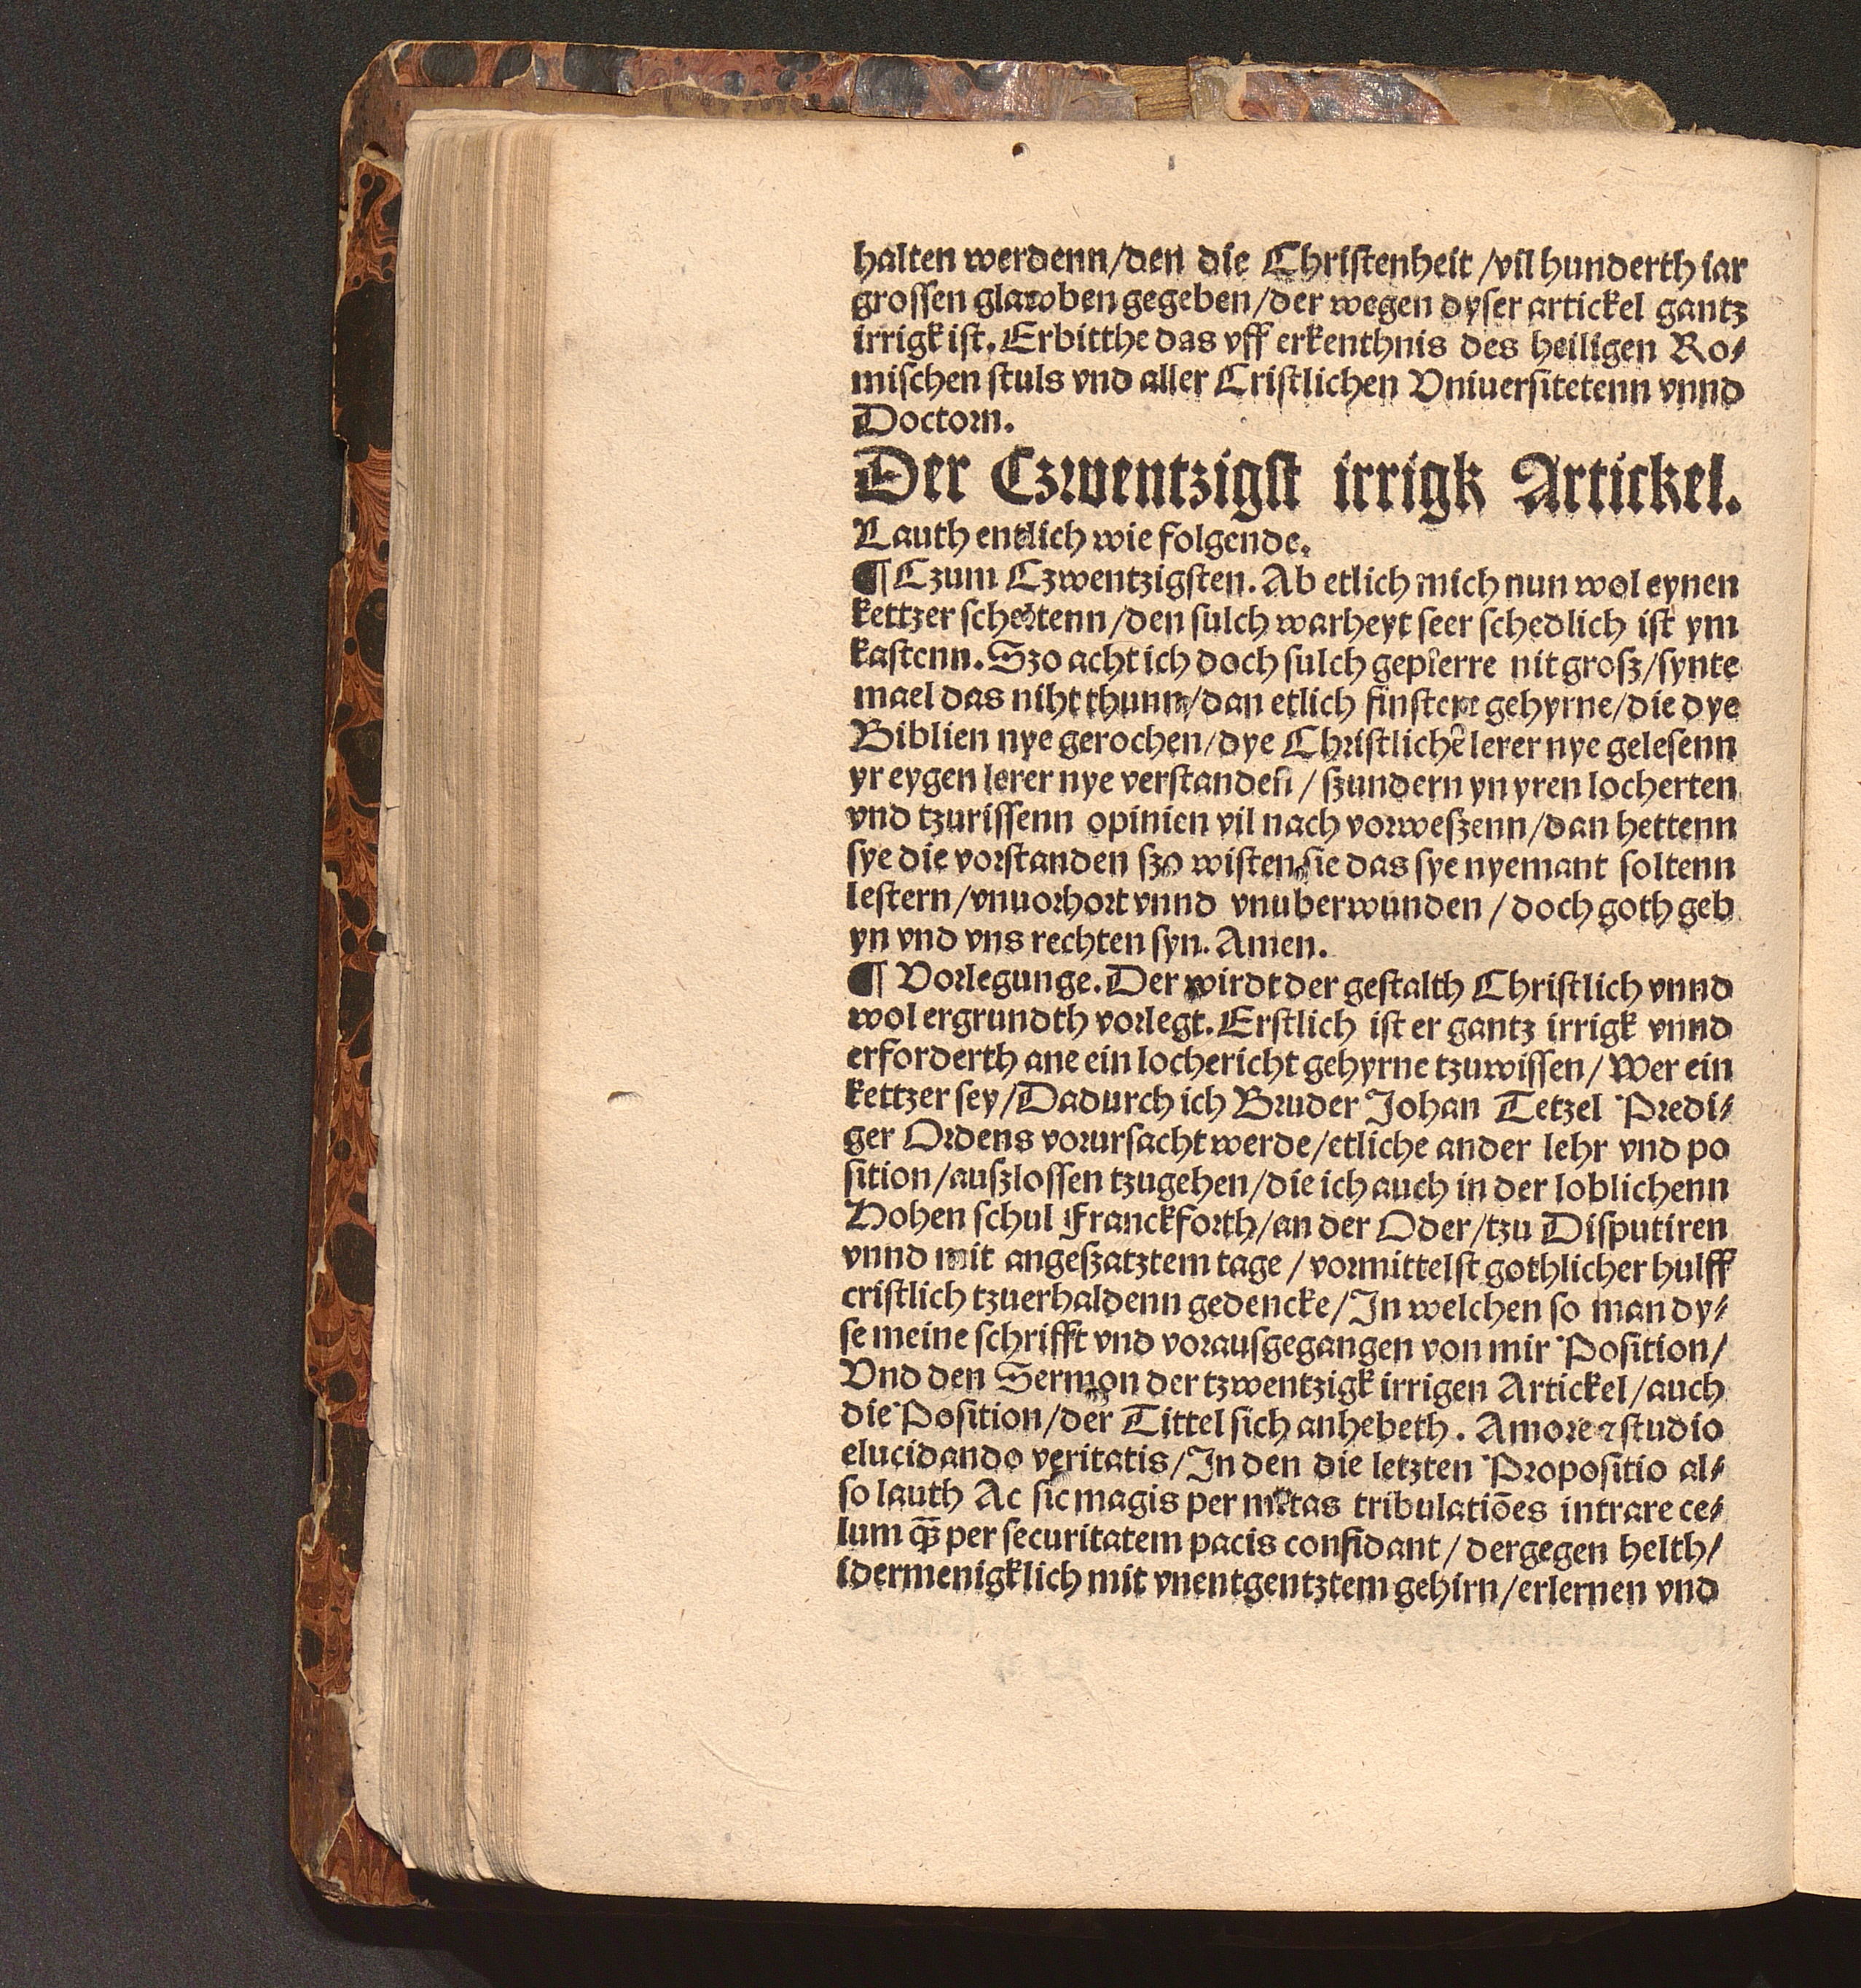 halten werdenn/den die Christenheit /vil hunderth iar
grossen glawben gegeben/der wegen dyser artickel gantz
irrigk ist. Erbitthe das vff erkenthnis des heiligen Ro⸗
mischen stuls vnd aller Cristlichen Vniuersitetenn vnnd
Doctorn.
Der Czwentzigst irrigk Artickel.
Lauth entlich wie folgende.
¶ Czum Czwentzigsten. Ab etlich mich nun wol eynen
kettzer scheltenn/den sulch warheyt seer schedlich ist ym
kastenn. Szo acht ich doch sulch geplerre nit grosz/synte
mael das niht thunn/dan etlich finstere gehyrne/die dye
Biblien nye gerochen/dye Christlichē lerer nye gelesenn
yr eygen lerer nye verstanden / szundern yn yren locherten
vnd tzurissenn opinien vil nach vorweszenn/dan hettenn
sye die vorstanden szo wisten sie das sye nyemant soltenn
lestern/vnuorhort vnnd vnuberwunden / doch goth geb
yn vnd vns rechten syn. Amen.
¶ Vorlegunge. Der wirdt der gestalth Christlich vnnd
wol ergrundth vorlegt. Erstlich ist er gantz irrigk vnnd
erforderth ane ein lochericht gehyrne tzuwissen/ Wer ein
kettzer sey/Dadurch ich Bruder Johan Tetzel Predi⸗
ger Ordens vorursacht werde/etliche ander lehr vnd po
sition/auszlossen tzugehen/die ich auch in der loblichenn
Hohen schul Franckforth/an der Oder/tzu Disputiren
vnnd mit angeszatztem tage / vormittelst gothlicher hulff
cristlich tzuerhaldenn gedencke/In welchen so man dy⸗
se meine schrifft vnd vorausgegangen von mir Position/
Vnd den Sermon der tzwentzigk irrigen Artickel/auch
die Position/der Tittel sich anhebeth. Amore ⁊ studio
elucidando veritatis/In den die letzten Propositio al⸗
so lauth Ac sic magis per multas tribulatiōes intrare ce⸗
lum qꝫ̄ per securitatem pacis confidant/ dergegen helth/
idermenigklich mit vnentgentztem gehirn/erlernen vnd